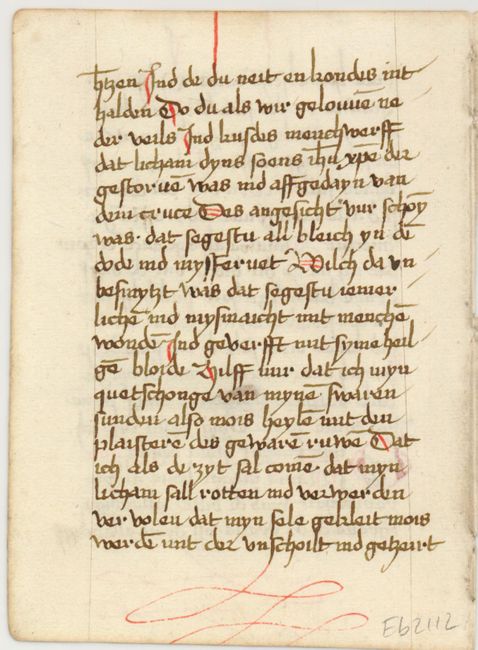 htzen Jnd de du neit en kondes int
halden Do du als wir gelouuē ne
der veils Jnd kusdes menchwerff
dat licham dyns soens ihū xpē der
gestoruē was ind affgedayn van
dem cruce Des angesicht vur schoȳ
was· dat segestu all bleich yn dē
dode ind mysferuet Wilch da vn
besmytzt was dat segestu iemer
lichē ind mysmaicht mit menchē
wondē Jnd geverfft mit syme heil
gē bloide Hilff mir dat ich myn
quetschonge van mynē swaren
sunden also mois heylē mit den
plaistere des gewarē ruwē Dat
ich als de zyt sal comē dat myn
licham sall rotten ind verwerden
ver volen dat myn sele gekleit mois
werdē mit der vnschoilt ind getzeirt
Eb2112